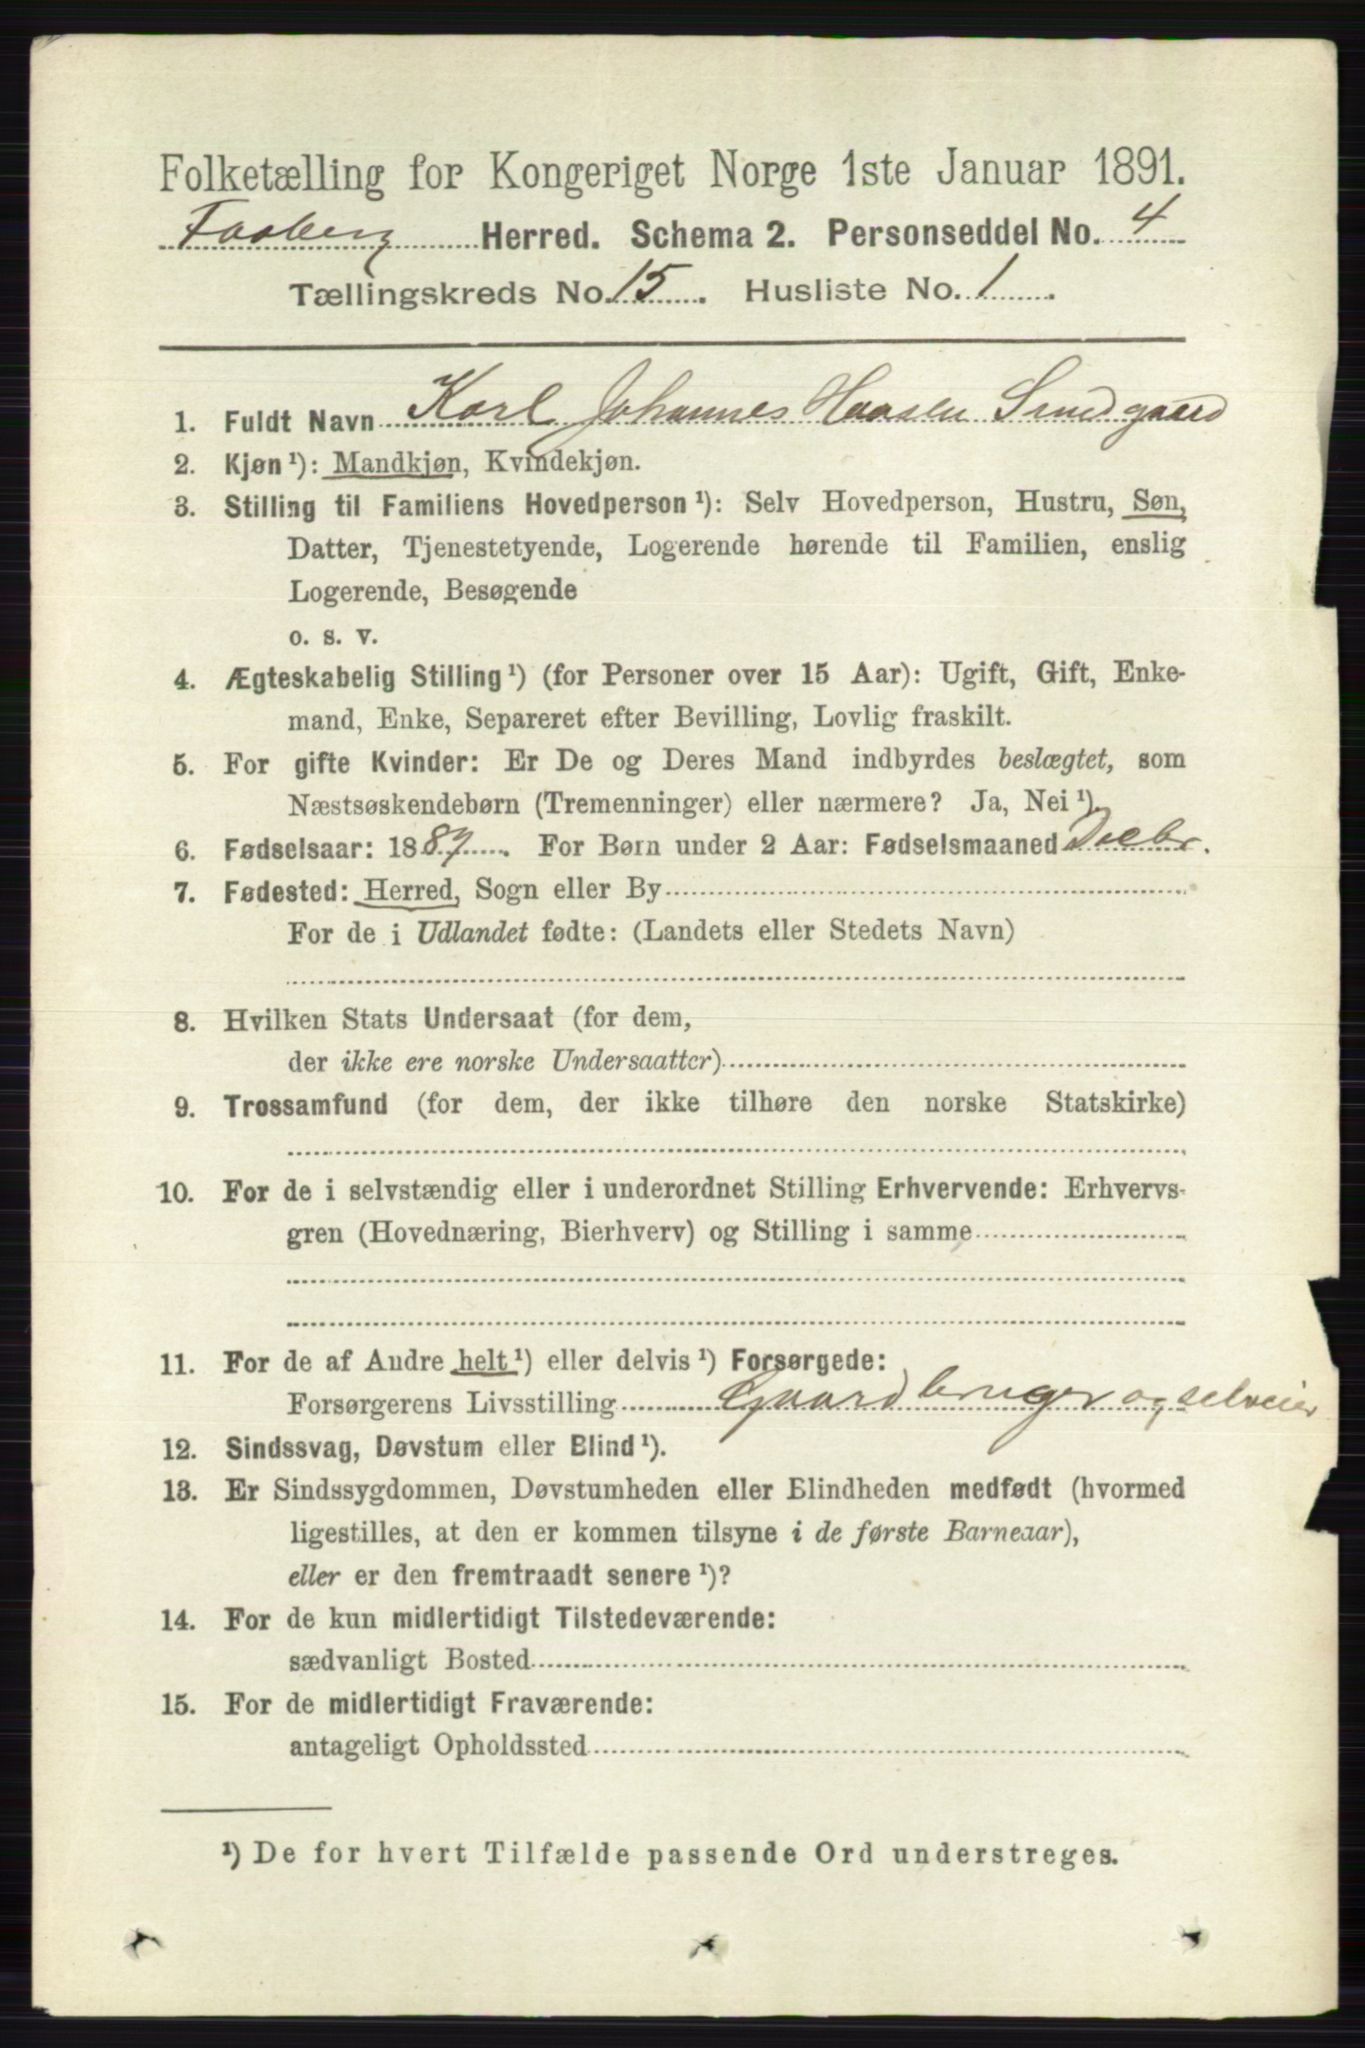 Folketælling for Kongeriget Norge 1ste Januar 1891.
Faaberg Herred. Schema 2. Personseddel No. 4
Tællingskreds No. 15. Husliste No. 1.
1. Fuldt Navn Karl Johannes Hansen
2. Kjøn¹): Mandkjøn, Kvindekjøn.
3. Stilling til Familiens Hovedperson¹): Selv Hovedperson, Hustru, Søn,
Datter, Tjenestetyende, Logerende hørende til Familien, enslig
Logerende, Besøgende
o. s. v.
4. Ægteskabelig Stilling¹) (for Personer over 15 Aar): Ugift, Gift, Enke-
mand, Enke, Separeret efter Bevilling, Lovlig fraskilt.
5. For gifte Kvinder: Er De og Deres Mand indbyrdes beslægtet, som
Næstsøskendebørn (Tremenninger) eller nærmere? Ja, Nei¹).
6. Fødselsaar: 1889. For Børn under 2 Aar: Fødselsmaaned Decbr.
7. Fødested: Herred, Sogn eller By
For de i Udlandet fødte: (Landets eller Stedets Navn)
8. Hvilken Stats Undersaat (for dem,
der ikke ere norske Undersaatter)
9. Trossamfund (for dem, der ikke tilhøre den norske Statskirke)
10. For de i selvstændig eller i underordnet Stilling Erhvervende: Erhvervs-
gren (Hovednæring, Bierhverv) og Stilling i samme
11. For de af Andre helt¹) eller delvis¹) Forsørgede:
Forsørgerens Livsstilling Gaardbruger og selveier
12. Sindssvag, Døvstum eller Blind¹).
13. Er Sindssygdommen, Døvstumheden eller Blindheden medfødt (hvormed
ligestilles, at den er kommen tilsyne i de første Barneaar),
eller er den fremtraadt senere¹)?
14. For de kun midlertidigt Tilstedeværende:
sædvanligt Bosted
15. For de midlertidigt Fraværende:
antageligt Opholdssted
¹) De for hvert Tilfælde passende Ord understreges.